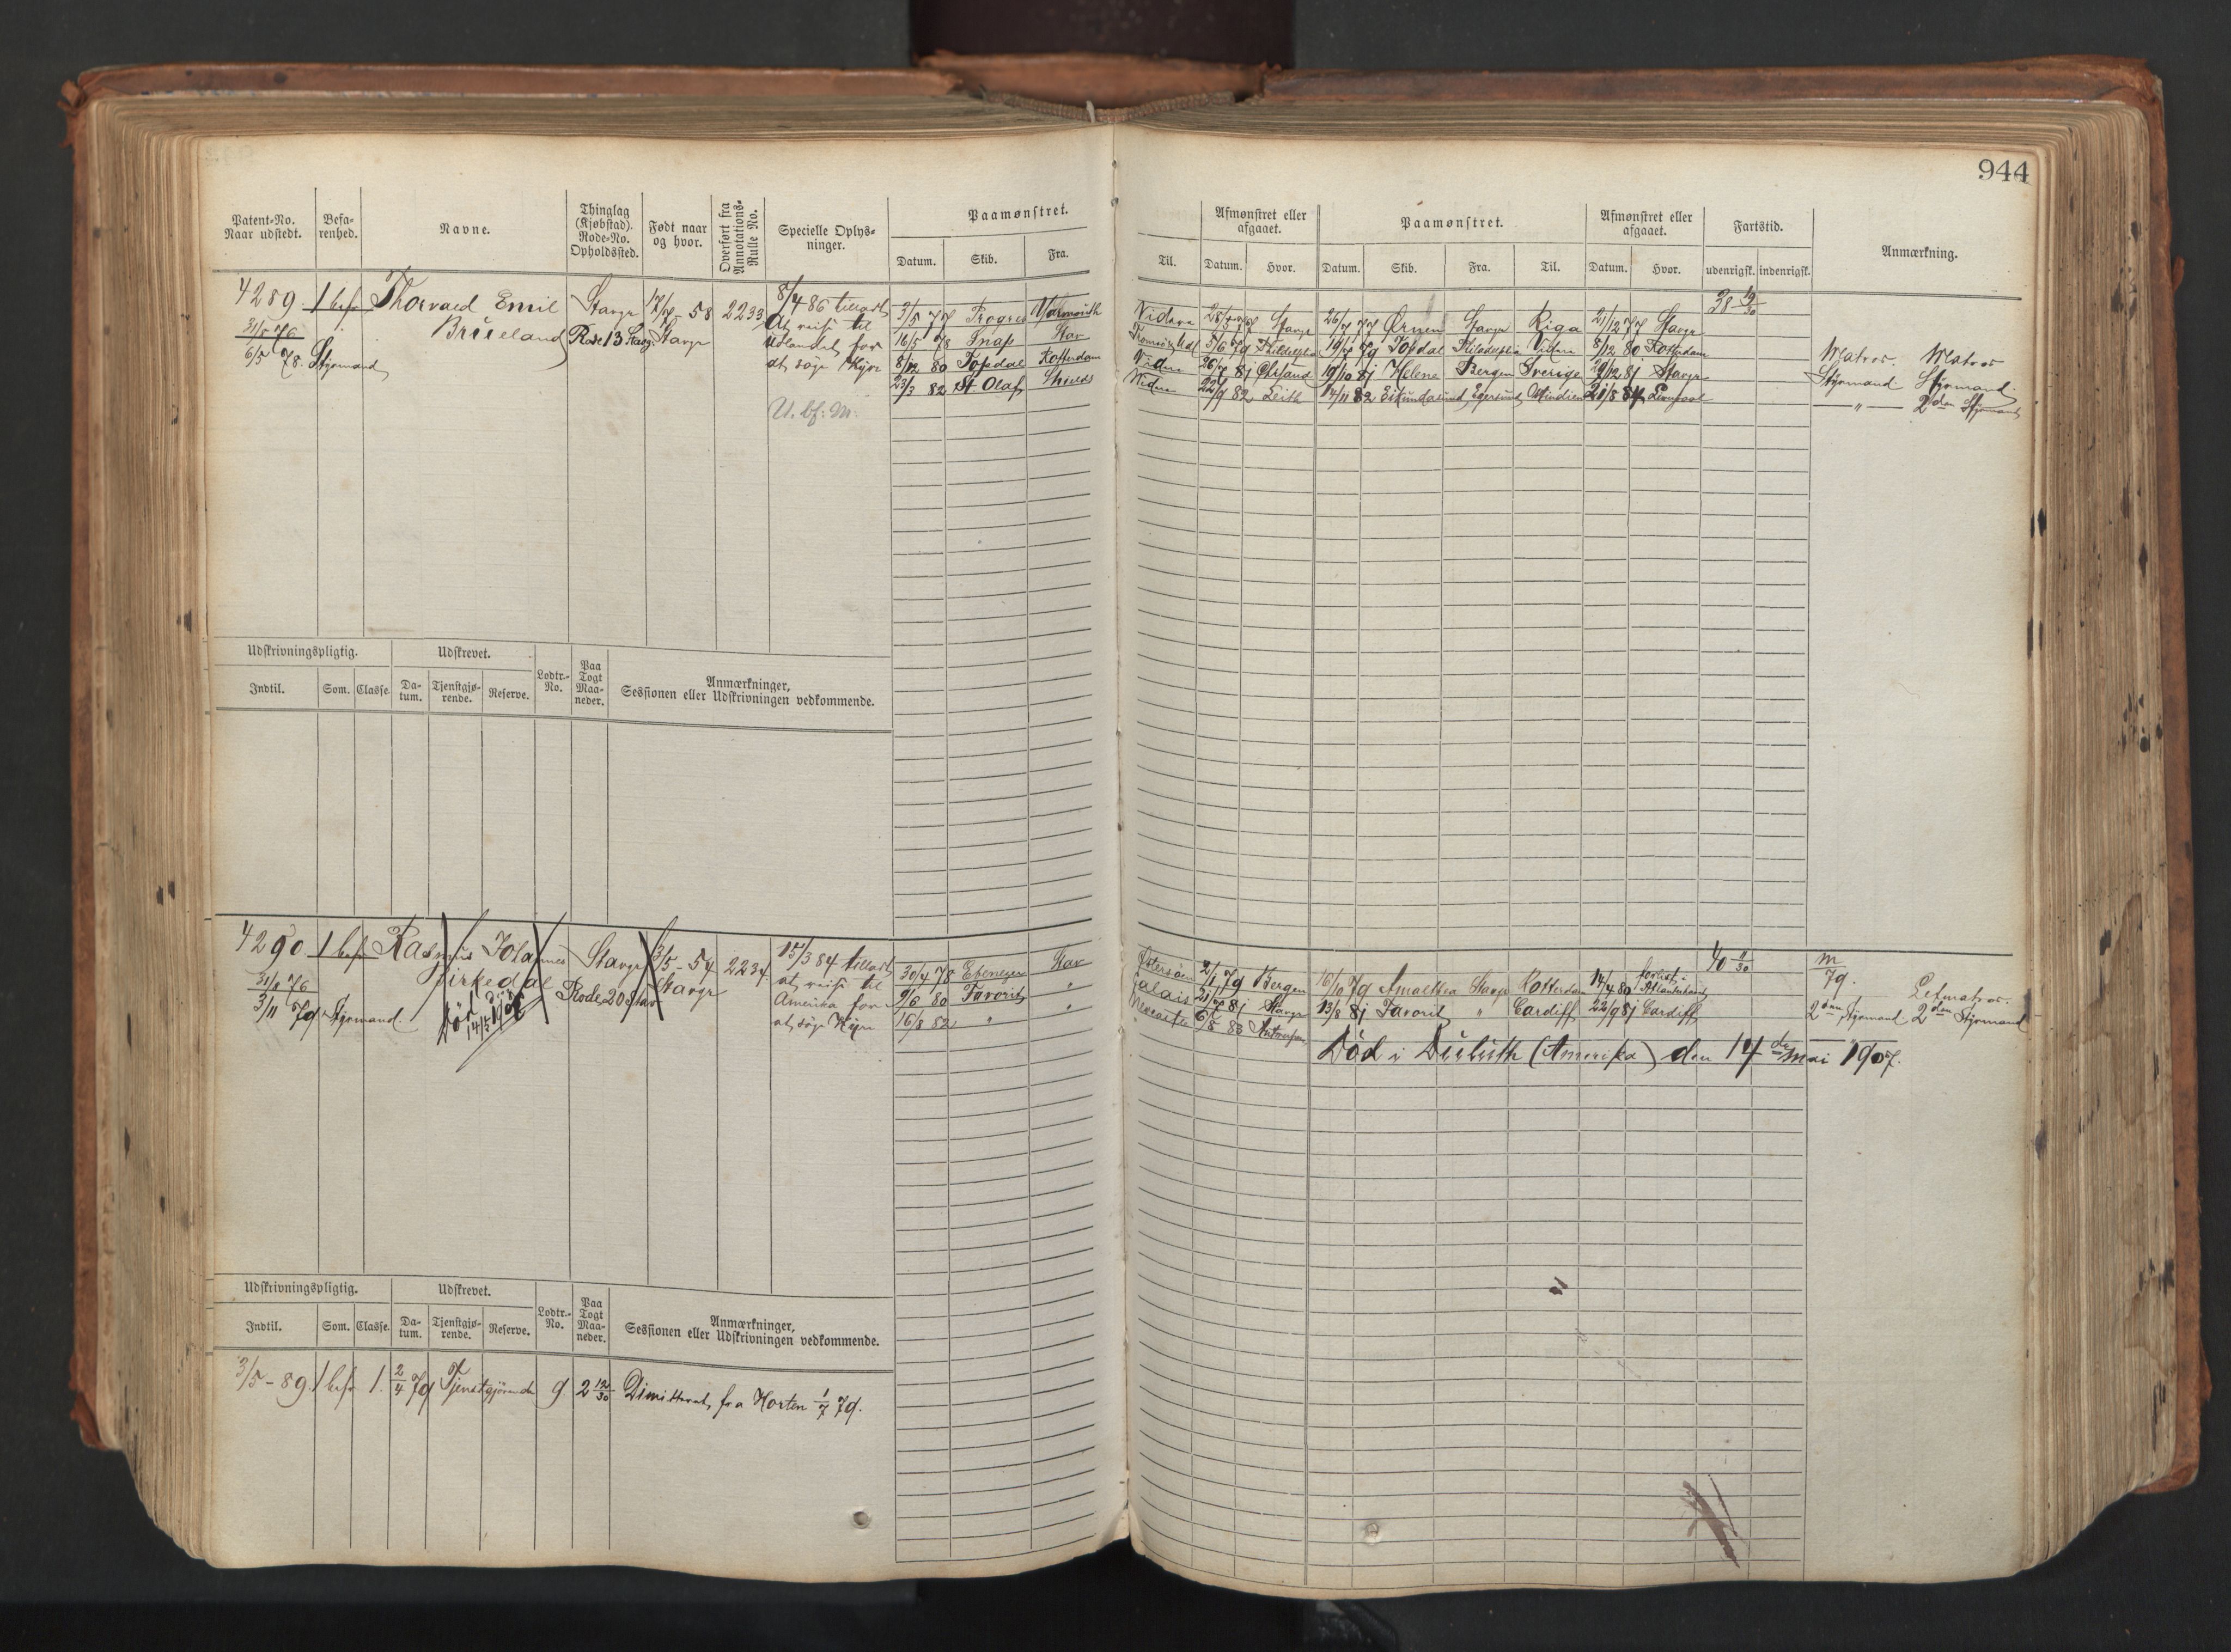 944
Patent-No. Naar udstedt.
Befarenhed.
Navne.
Thinglag (Kjøbstad). Rode-No. Opholdssted.
Født naar og hvor.
Overført fra Annotations-Rulle No.
Specielle Oplysninger.
Paamønstret.
Datum. Skib. Fra.
Til.
Afmønstret eller afgaaet.
Datum. Hvor.
Paamønstret.
Datum. Skib. Fra. Til.
Afmønstret eller afgaaet.
Datum. Hvor.
Fartstid.
udenrigsk. indenrigsk.
Anmærkning.
4289. 1 bef. Thorvald Emil Stavgr 17/7-58 2233
31/5 76 Brueland Rode 13 Stavg. Stavgr
6/5 78. Styrmand
8/4 86 tilladt
At reise til
Udlandet for
at søge Hyre
U. bf. M.
3/5 77 Progres Yarmouth
16/5 78 Snap Stav
8/12 80 Topdal Rotterdam
23/3 82 St Olaf Shields
Stavgr 26/7 77 Ørnen Stavgr Riga 21/12 77 Stavgr
5/6 79 Philadelphia 19/7 79 Topdal Philadelphia Viden 8/12 80 Rotterdam
26/7 81 Chrsand 19/10 81 Helene Bergen Sverige 29/12 81 Stavgr
22/9 82 Leith 14/11 82 Eikundasund Egersund Ostindien 21/8 84 Liverpool
38 19/30
Matros. Matros
Styrmand Styrmand.
— " — 2den Styrmand
Udskrivningspligtig. Udskrevet.
Indtil. Som. Classe. Datum. Tjenstgjørende. Reserve. Lodtr.-No. Paa Togt Maaneder.
Anmærkninger,
Sessionen eller Udskrivningen vedkommende.
4290 1 bef Rasmus Johannes Stavgr 3/5-54 2234.
31/8 76 Birkedal Rode 20 Stav Stavgr
3/11 79 Styrmand. Död 14/5
15/3 84 tilladt
at reise til
Amerika for
at søge Hyre
30/4 78 Ebeneser Stav
9/6 80 Favorit "
16/8 82 " "
Östersöen 2/1 79 Bergen 16/10 79 Amalthea Stavgr Rotterdam 14/4 80 forlist i Atlanterhavet
Calais 21/7 81 Stavgr 13/8 81 Favorit " Cardiff 22/9 81 Cardiff
Newcastle 6/8 83 Antwerpen
40 11/30
m 79. Letmatros.
2den Styrmand 2den Styrmand
Död i Duluth (Amerika) den 14de mai 1907.
Udskrivningspligtig. Udskrevet.
Indtil. Som. Classe. Datum. Tjenstgjørende. Reserve. Lodtr.-No. Paa Togt Maaneder.
Anmærkninger,
Sessionen eller Udskrivningen vedkommende.
3/5-89. 1 bef 1. 2/4 79 Tjenstgjörende 9 2 12/30 Dimitteret fra Horten 1/7 79.